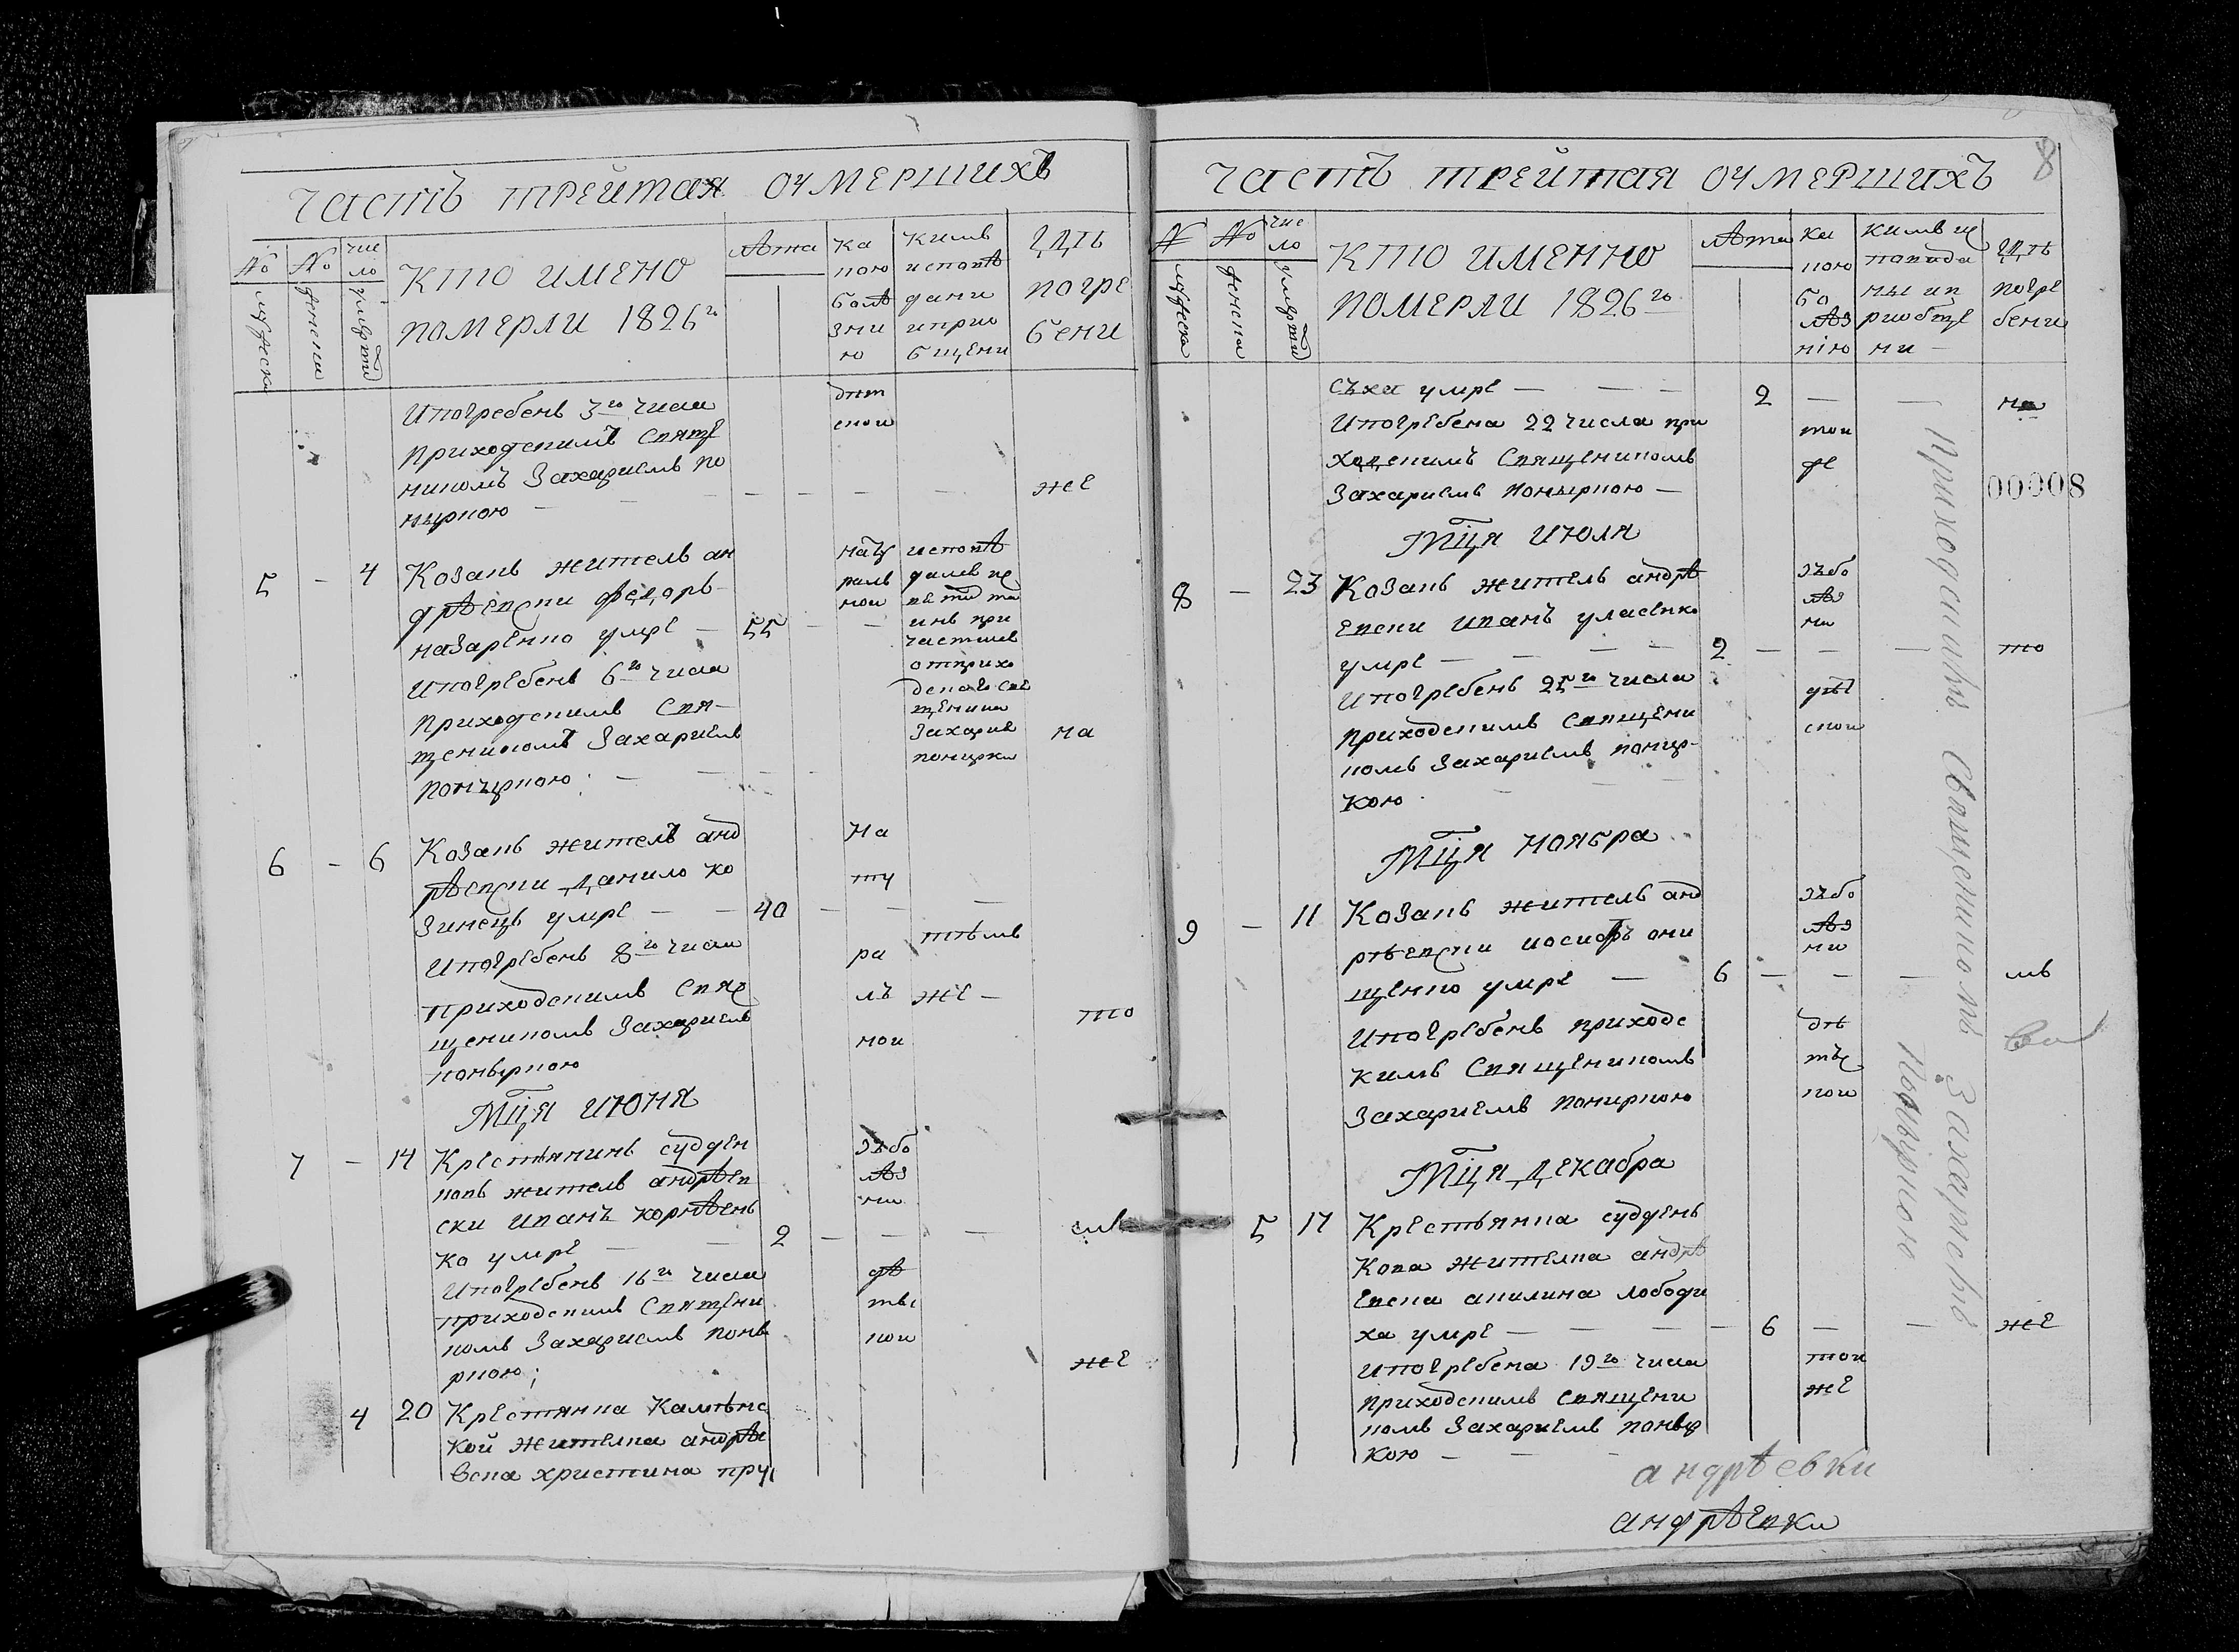 часть трейтая очмершихъ
№ мужеска
№ женски
число умерти
кто имено
померли 1826го
лѣта
ка
кою
болѣ
зни
ю
кимъ
исповѣ
дани
иприо
бщени
гдѣ
погре
бени
Ипогребенъ 3го числа
приходскимъ Свяще
никомъ Захариемъ ко
ныркою
дѣт
скои
же
5 - 4
Козакъ житель ан
дрѣевски федоръ
назаренко умре - 55
Ипогребенъ 6го числа
приходскимъ Свя-
щеникомъ Захариемъ
коныркою
нату
раль
нои
исповѣ
при
частилъ
отприхо
Захарие
на
6 - 6
Козакъ житель анд
рѣевски данило ко
зинецъ умре - - 40
Ипогребенъ 8го числа
приходскимъ Свя
щеникомъ Захариемъ
коныркою
На
ту
ра
лъ
нои
тѣмъ
же -
то
Мця июня
7 - 14
Крестянинъ судден
ковъ житель андрѣев
ски иванъ корнѣень
ко умре - - 2
Ипогребенъ 16го числа
приходскимъ Священи
комъ Захариемъ коны
ркою;
зъбо
лѣз
ни
дѣ
тъс
кои
же
4 20
Крестянка Каменс
кой жителка андрѣе
вска христина пру
часть трейтая очмерших
8
№ мужеска
№ женска
число умерти
кто именно
померли 1826го
лѣта
ка
кою
бо
лѣз
нію
кимъ и
поведа
ны ип
риобще
ни
гдѣ
погре
бени
съха умре - - - 2 - - на
Ипогребена 22 числа при
ходскимъ Священикомъ
Захариемъ коныркою -
тои
же
00008
Мця июля
8 - 23
Козакъ житель андрѣ
евски иванъ уласенко
умре - - - - 2 - - - то
Ипогребенъ 25го числа
приходскимъ Священи
комъ Захариемъ коныр-
кою
зъбо
лѣз
ни
дѣт
скои
Мця ноября
9 - 11
Козакъ житель анд
рѣевски иосифъ они
щенко умре - 6 - - - мъ
Ипогребенъ приходс
кимъ Священикомъ
Захариемъ коныркою
зъбо
лѣз
ни
дѣ
тъс
кои
Мця декабра
5 17
Крестьянка судденъ
кова жителка андрѣ
евска акилина лободи
ха умре - - - - 6 - - же
Ипогребена 19го числа
приходскимъ Священи
комъ Захариемъ коныр
кою -
тои
же
приходскимъ Священикомъ Захариемъ
Коныркою
андрѣевки
андрѣевки